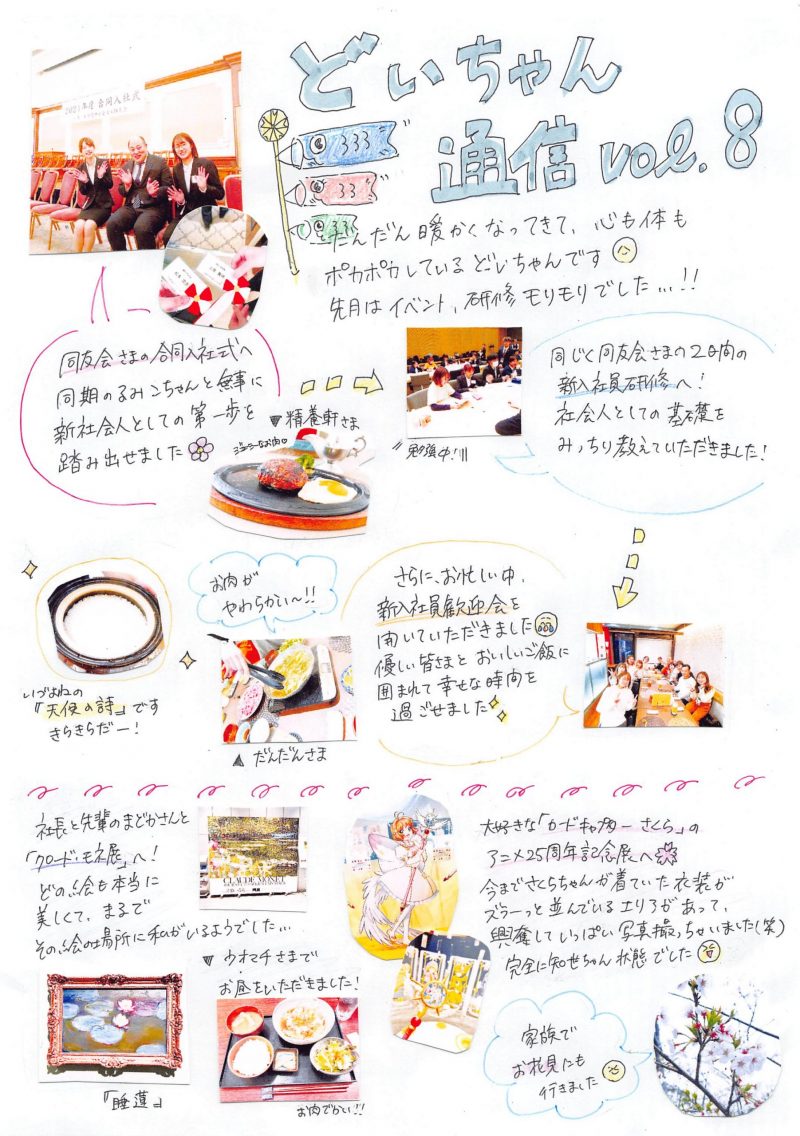 どいちゃん
通信 vol.8
だんだん暖かくなってきて、心も体も
ポカポカしているどいちゃんです
先月はイベント、研修モリモリでした…!!
同友会さまの合同入社式へ
同期のるみこちゃんと無事に
新社会人としての第一歩を
踏み出せました
▼精養軒さま
ジューシーなお肉♡
勉強中!!
同じく同友会さまの2日間の
新入社員研修へ!
社会人としての基礎を
みっちり教えていただきました!
いづよねの
『天使の詩』です
きらきらだー!
お肉が
やわらかい〜!!
▲だんだんさま
さらに、お忙しい中、
新入社員歓迎会を
開いていただきました
優しい皆さまとおいしいご飯に
囲まれて幸せな時間を
過ごせました
社長と先輩のまどかさんと
「クロード・モネ展」へ!
どの絵も本当に
美しくて、まるで
その絵の場所に私がいるようでした…
CLAUDE MONET
▼ウオマチさまで
お昼をいただきました!
『睡蓮』
お肉でかい!!
大好きな「カードキャプターさくら」の
アニメ25周年記念展へ
今までさくらちゃんが着ていた衣装が
ズラーっと並んでいるエリアがあって、
興奮していっぱい写真撮っちゃいました(笑)
完全に知世ちゃん状態でした
家族で
お花見にも
行きました